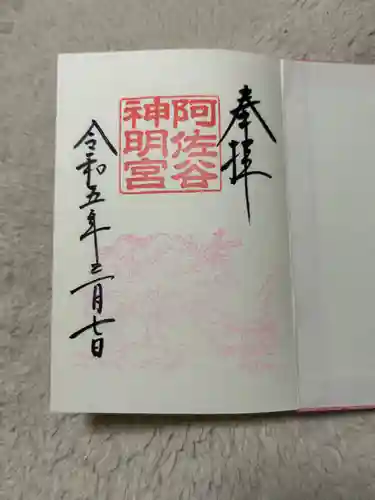 奉拝
阿佐谷
神明宮
令和五年二月七日